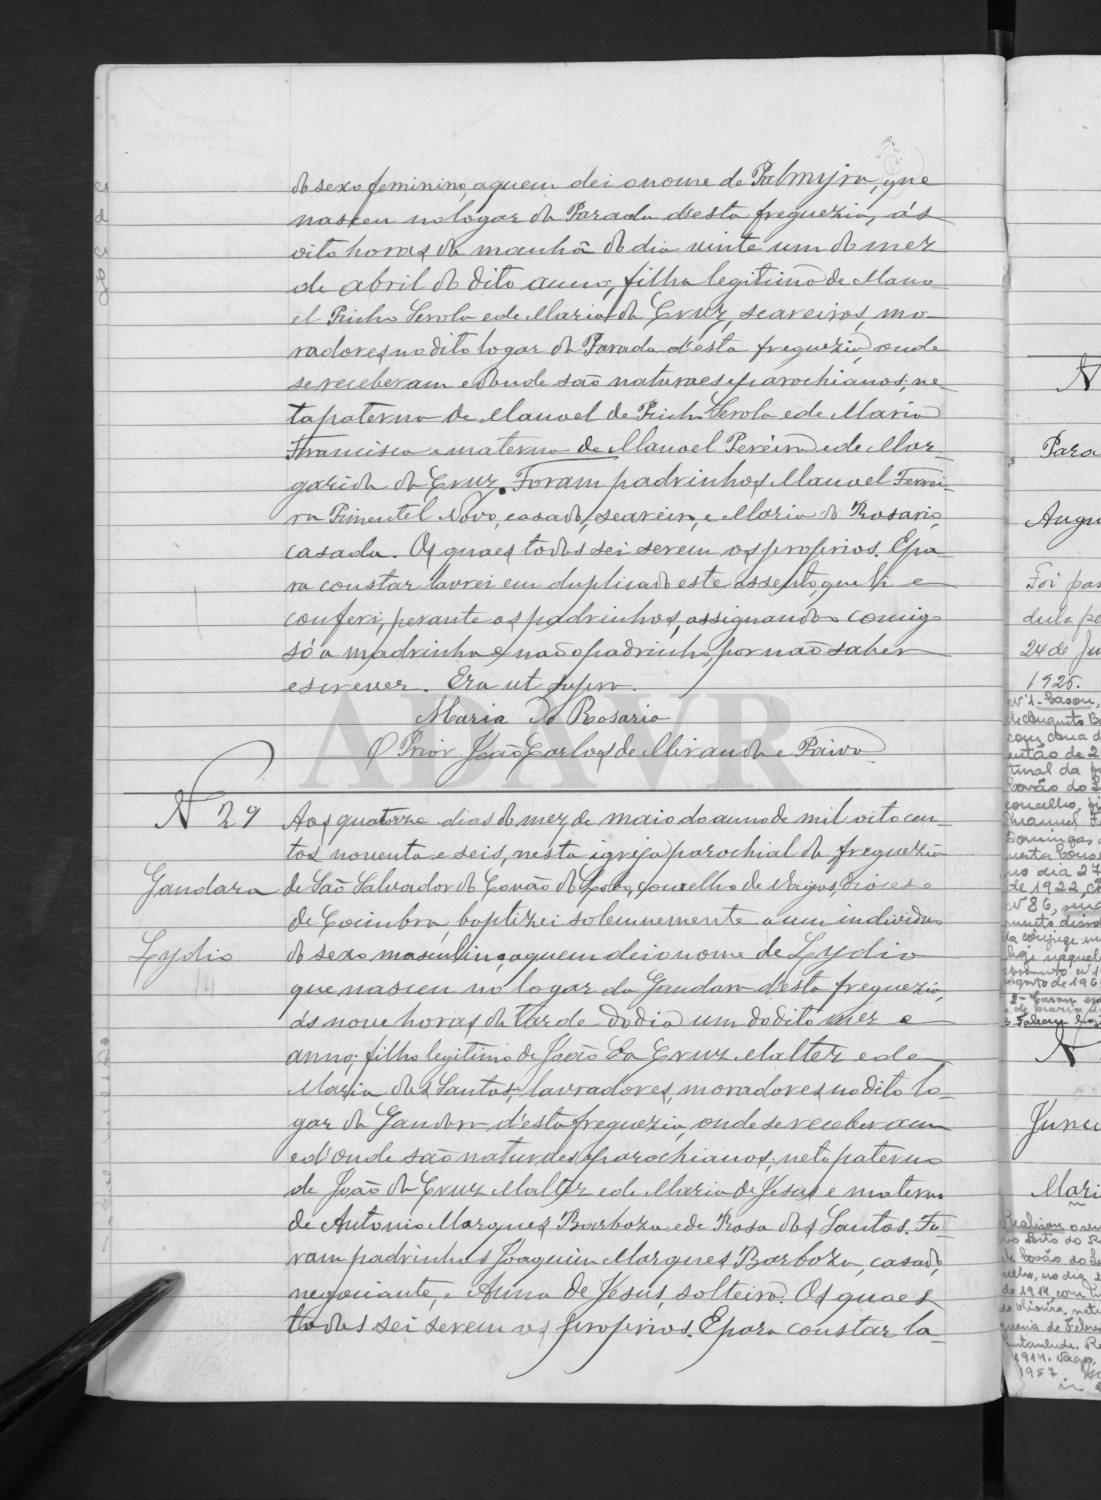 do sexo feminino, a quem dei o nome de Palmyra, que
nasceu no logar da Parada d'esta freguezia, ás
oito horas da manhã do dia vinte um do mez
de abril do dito anno, filha legitima de Mano-
el Picho Serola e de Maria da Cruz, seareiros, mo-
radores no dito logar da Parada d'esta freguezia, onde
se receberam e d'onde são naturaes e parochianos; ne-
ta paterna de Manoel de Picho Serola e de Maria
Francisca e materna de Manoel Pereira e de Mar-
garida da Cruz. Foram padrinhos Manoel Ferrei-
ra Pimentel Novo, casado, seareiro, e Maria do Rosario,
casada. Os quaes todos sei serem os proprios. E pa-
ra constar lavrei em duplicado este assento, que li e
conferi, perante os padrinhos, assignando comigo
só a madrinha e não o padrinho, por não saber
escrever. Era ut supra.
Maria do Rosario
O Prior João Carlos de Miranda e Paiva
ADAVR
Nº 29
Gandara
Lydio
Aos quatorze dias do mez de maio do anno de mil oito cen-
tos noventa e seis, nesta igreja parochial da freguezia
de São Salvador do Covão do Lobo, concelho de Vagos, diocese
de Coimbra, baptizei solemnemente a um individuo
do sexo masculino, a quem dei o nome de Lydio
que nasceu no logar da Gandara d'esta freguezia,
ás nove horas da tarde do dia um do dito mez e
anno; filho legitimo de João da Cruz Malter e de
Maria dos Santos, lavradores, moradores no dito lo-
gar da Gandara d'esta freguezia, onde se receberam
e d'onde são naturaes e parochianos; neto paterno
de João da Cruz Malter e de Maria de Jesus e materno
de Antonio Marques Barboza e de Rosa dos Santos. Fo-
ram padrinhos Joaquim Marques Barboza, casado,
negociante, e Anna de Jesus, solteira. Os quaes
todos sei serem os proprios. E para constar la-
N
Para
Augu
Foi pas
dula pe
24 de Ju
1925.
Nº 1 - Casou,
de Augusto B
com
de 1922
Nº 86,
N
Junc
Mari
de 1914
1914. Vagos,
1957